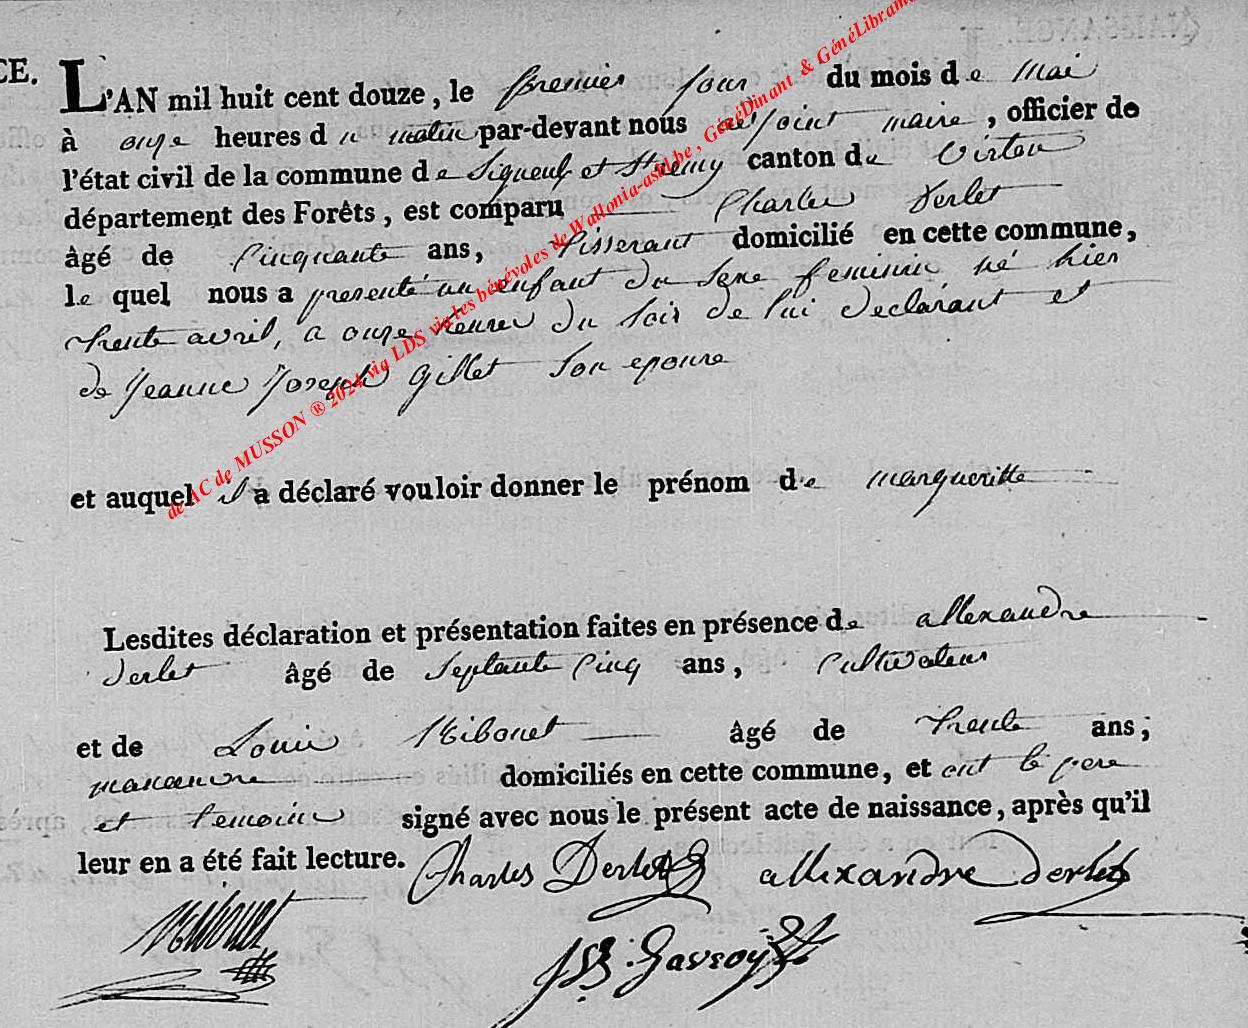 CE. L'AN mil huit cent douze, le premier jour du mois de Mai
à onze heures du matin par-devant nous adjoint maire, officier de
l'état civil de la commune de Signeul et St remy canton de Virton
département des Forêts, est comparu Charles Derlet
âgé de Cinquante ans, tisserant domicilié en cette commune,
le quel nous a presenté un enfant du sexe feminin né hier
trente avril, a onze heures du soir de lui declarant et
de Jeanne Joseph Gillet son epouse
et auquel il a déclaré vouloir donner le prénom de margueritte
Lesdites déclaration et présentation faites en présence de allexandre
Derlet âgé de Septante Cinq ans, Cultivateur
et de Louis âgé de trente ans;
manoeuvre domiciliés en cette commune, et ont le pere
et temoins signé avec nous le présent acte de naissance, après qu'il
leur en a été fait lecture. Charles Derlet allexandre Derlet
de AC de MUSSON ® 2024 via LDS via les bénévoles de Wallonia-asbl.be, GénéDinant & GénéLibrami